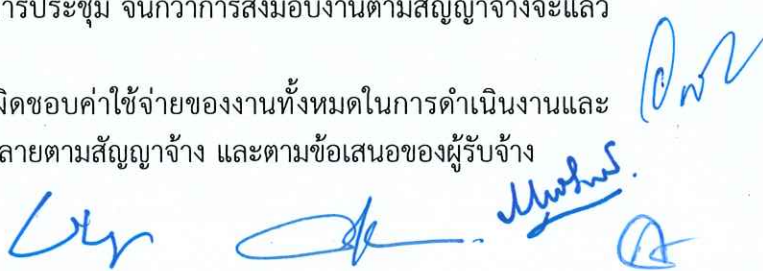 ารประชุม จนกว่าการส่งมอบงานตามสัญญาจ้างจะแล้ว
ผิดชอบค่าใช้จ่ายของงานทั้งหมดในการดำเนินงานและ
ลายตามสัญญาจ้าง และตามข้อเสนอของผู้รับจ้าง